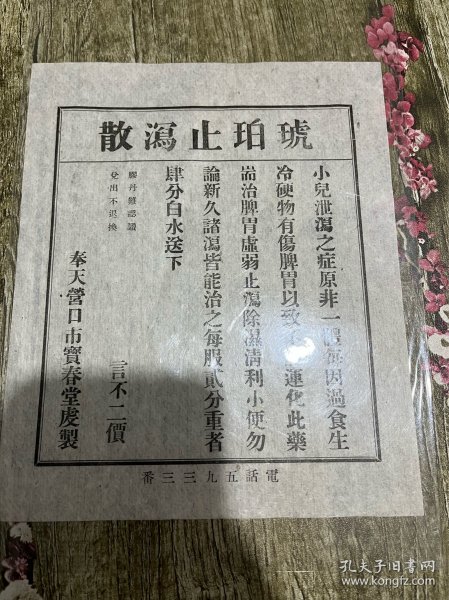 琥珀止瀉散
小兒泄瀉之症原非一體每因過食生
冷硬物有傷脾胃以致運化此藥
耑治脾胃虛弱止瀉除濕清利小便勿
論新久諸瀉皆能治之每服貳分重者
肆分白水送下
膠丹難認識
兌出不退換
言不二價
奉天營口市寶春堂虔製
電話五九三三番
孔夫子旧书网
www.kongfz.com